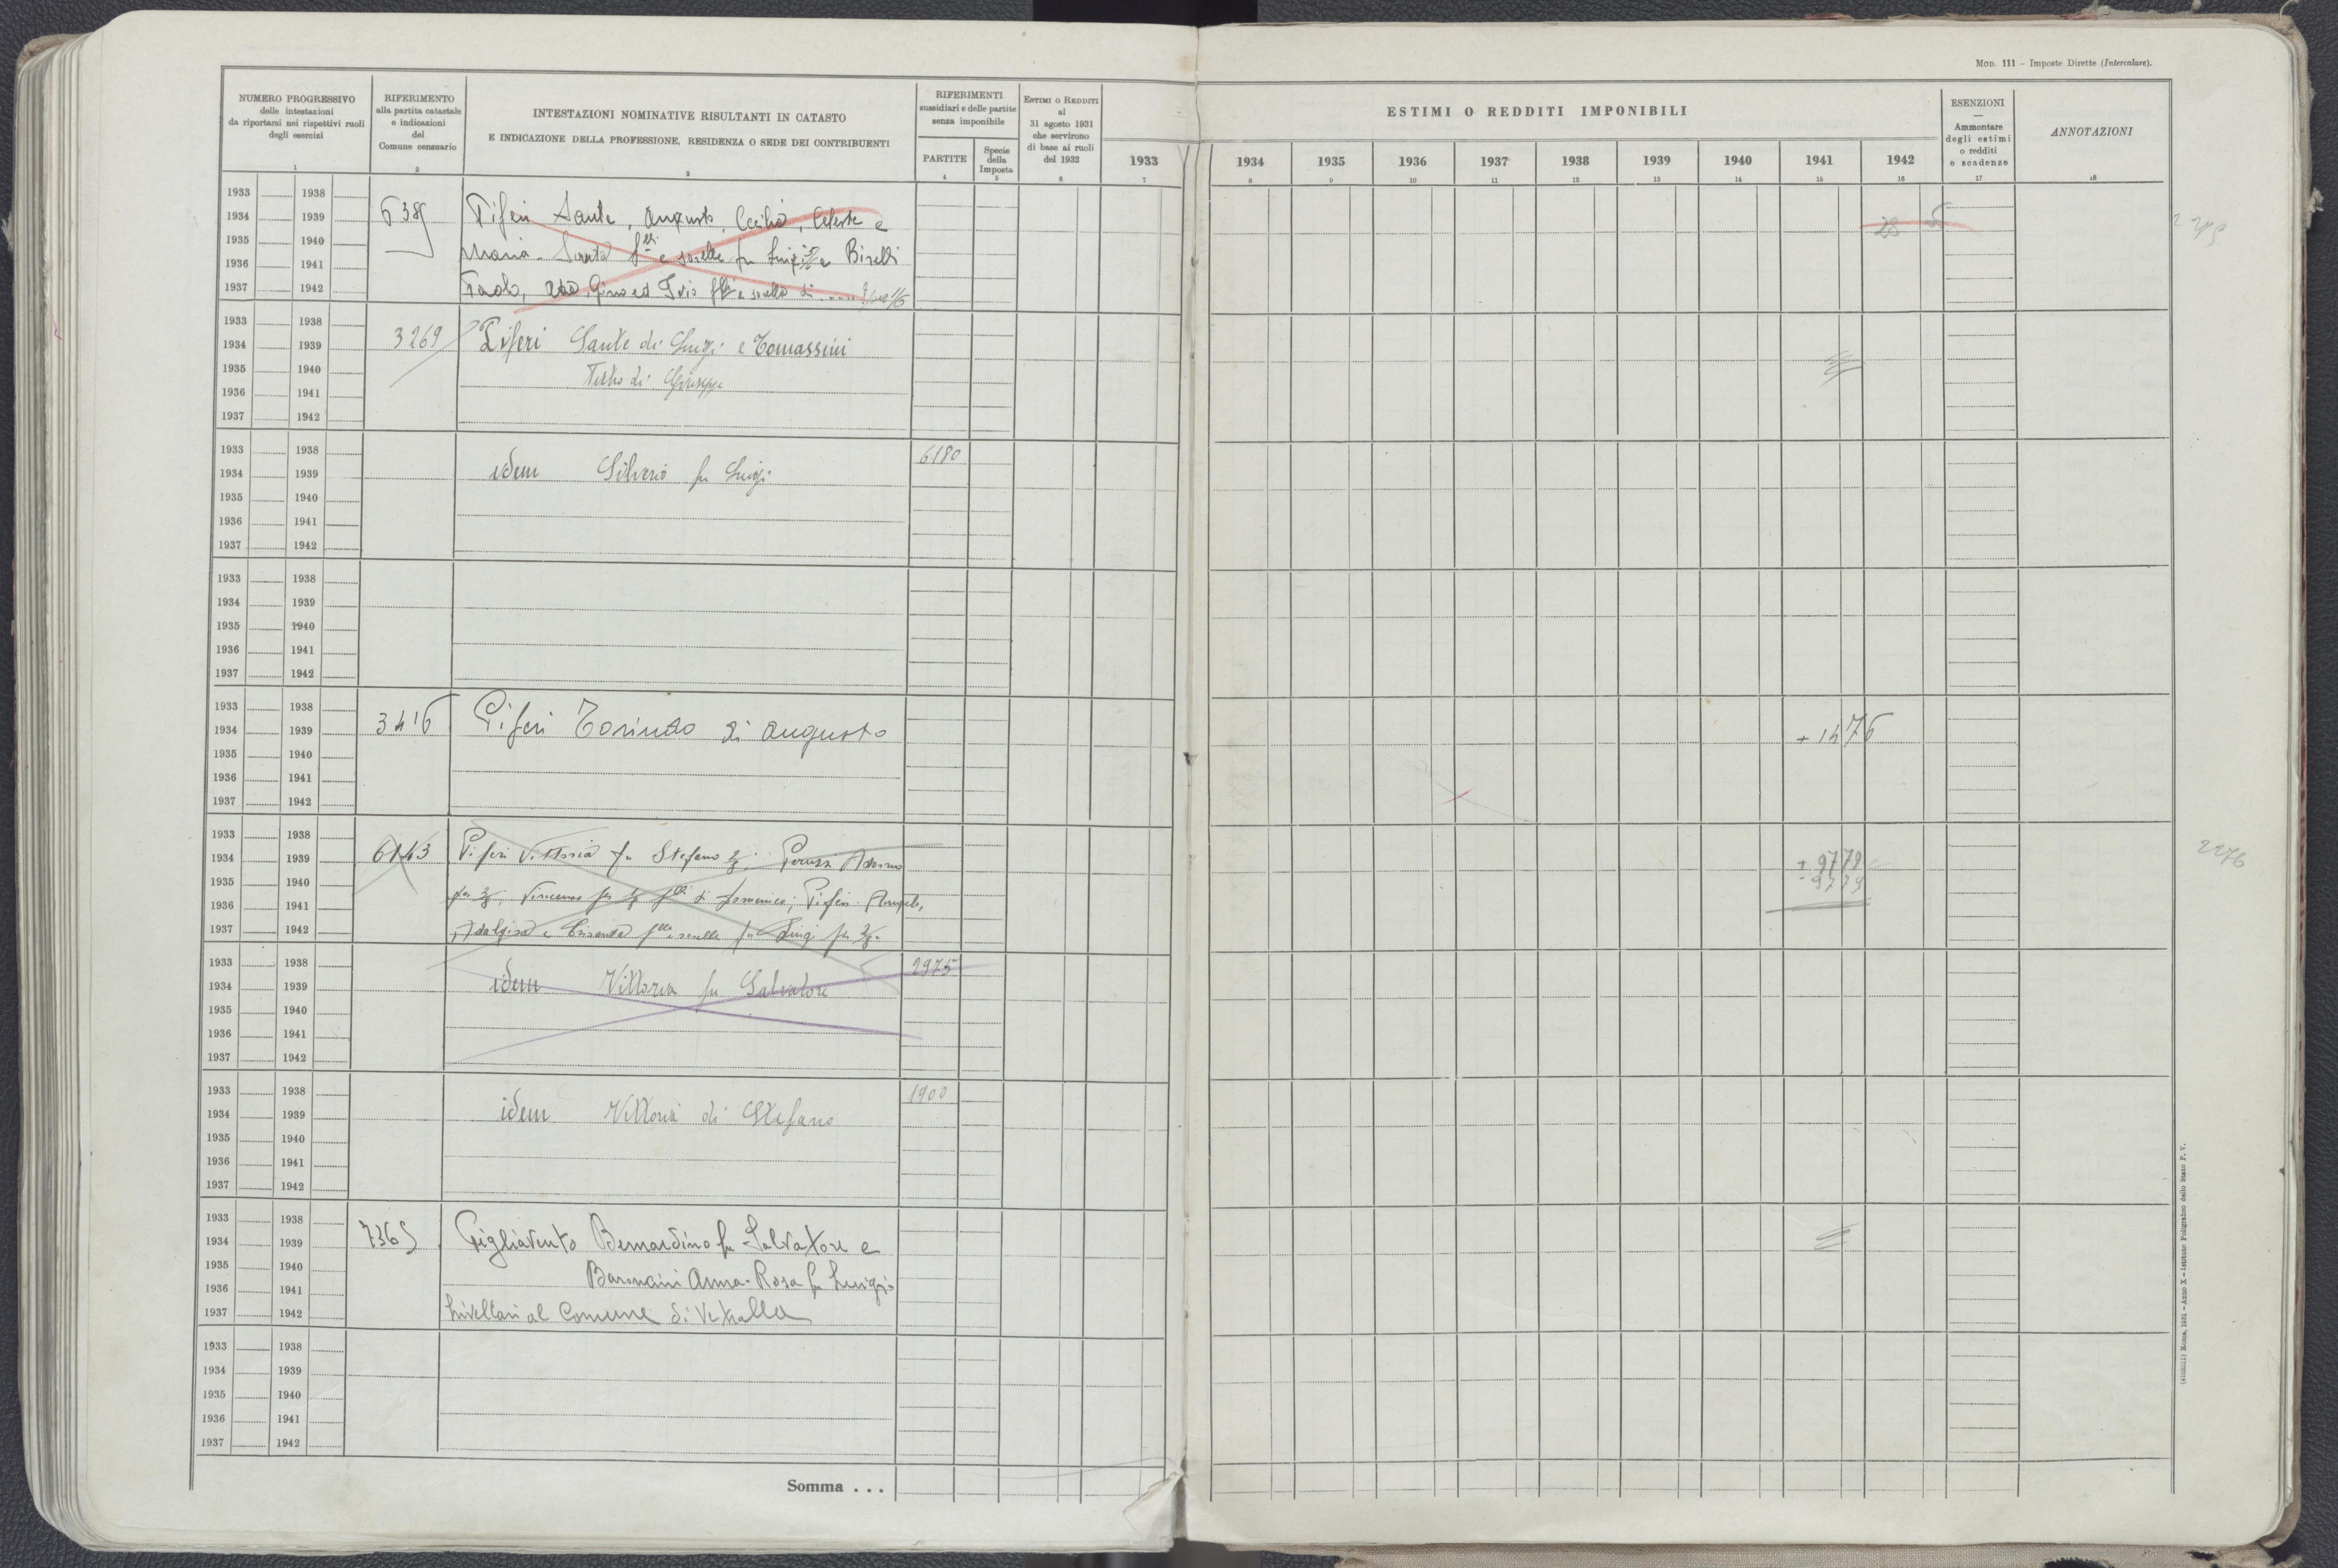 MOD. 111 – Imposte Dirette (Intercalare).
NUMERO PROGRESSIVO
delle intestazioni
da riportarsi nei rispettivi ruoli
degli esercizi
1
RIFERIMENTO
alla partita catastale
e indicazioni
del
Comune censuario
2
INTESTAZIONI NOMINATIVE RISULTANTI IN CATASTO
E INDICAZIONE DELLA PROFESSIONE, RESIDENZA O SEDE DEI CONTRIBUENTI
3
RIFERIMENTI
sussidiari e delle partite
senza imponibile
PARTITE
4
Specie
della
Imposta
5
ESTIMI O REDDITI
al
31 agosto 1931
che servirono
di base ai ruoli
del 1932
6
ESTIMI O REDDITI IMPONIBILI
1933 1934 1935 1936 1937 1938 1939 1940 1941 1942
7 8 9 10 11 12 13 14 15 16
ESENZIONI
—
Ammontare
degli estimi
o redditi
e scadenze
17
ANNOTAZIONI
18
1933 1938
1934 1939
1935 1940
1936 1941
1937 1942
Piferi Sante, Augusto, Cecilia, Celeste e
Maria Santa f.lli e sorelle fu Luigi e Biselli
Paolo, Gino ed f.lli e sorella di
28
1933 1938
1934 1939
1935 1940
1936 1941
1937 1942
3269 Piferi Sante di Luigi e Tomassini
di Giuseppe
1933 1938
1934 1939
1935 1940
1936 1941
1937 1942
idem Silverio fu Luigi 6180
1933 1938
1934 1939
1935 1940
1936 1941
1937 1942
1933 1938
1934 1939
1935 1940
1936 1941
1937 1942
3416 Piferi Torindo di Augusto + 1476
1933 1938
1934 1939
1935 1940
1936 1941
1937 1942
6143 Piferi Vittoria fu Stefano Peruzzi Adorno
Vincenzo f.lli di Domenico; Piferi Angelo,
Adalgisa e Crisanta f.llo e sorelle fu Luigi per
+ 9779
- 9779
2276
1933 1938
1934 1939
1935 1940
1936 1941
1937 1942
idem Vittoria fu Salvatore 2975
1933 1938
1934 1939
1935 1940
1936 1941
1937 1942
idem Vittoria di Stefano 1900
1933 1938
1934 1939
1935 1940
1936 1941
1937 1942
7365 Pigliavento Bernardino fu Salvatore e
Baroncini Anna-Rosa fu Luigi
livellari al Comune di Vetralla
1933 1938
1934 1939
1935 1940
1936 1941
1937 1942
Somma . . .
Roma, 1931 – Anno X – Istituto Poligrafico dello Stato P. V.